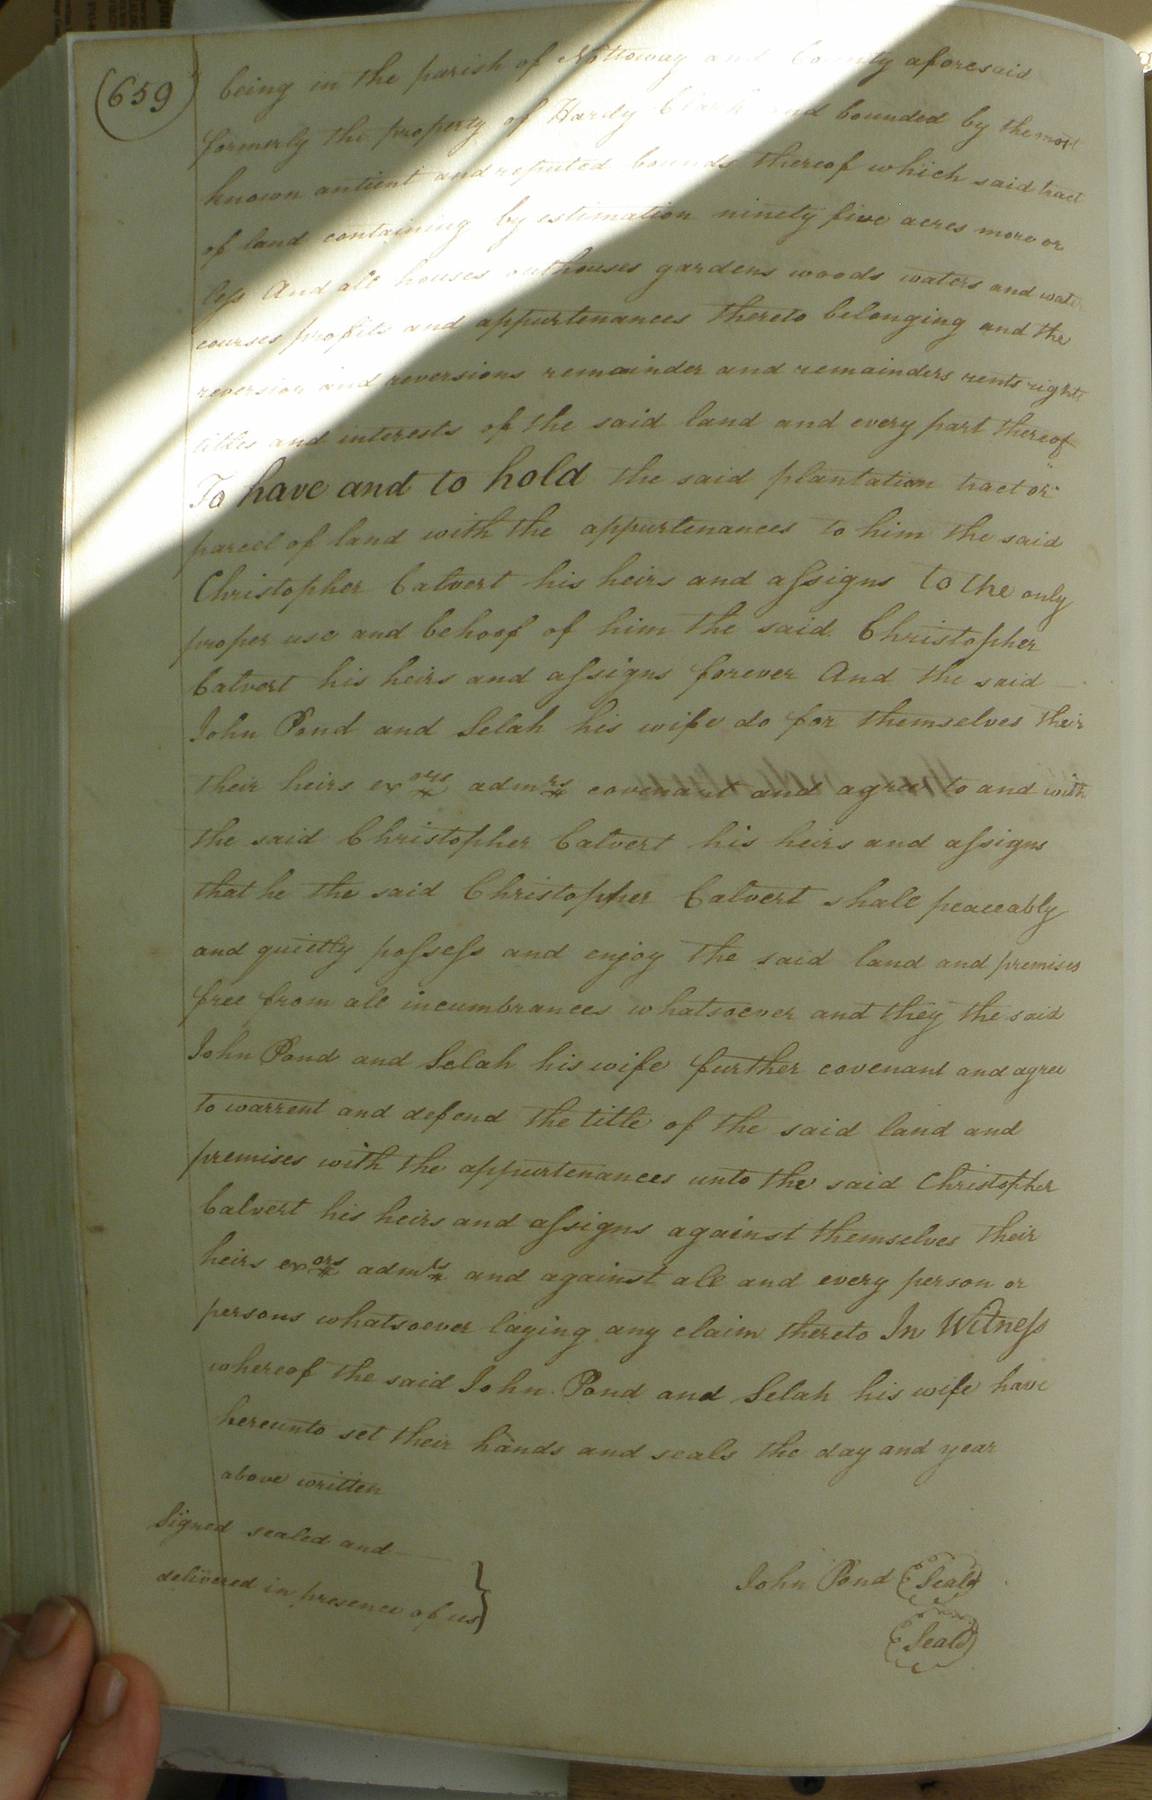 (659)
being in the parish of Nottoway and County aforesaid
formerly the property of Hardy Clark and bounded by the most
known antient and reputed bounds thereof which said tract
of land containing by estimation ninety five acres more or
less And all houses outhouses gardens woods waters and water
courses profits and appurtenances thereto belonging and the
reversion and reversions remainder and remainders rents rights
titles and interests of the said land and every part thereof
To have and to hold the said plantation tract or
parcel of land with the appurtenances to him the said
Christopher Calvert his heirs and assigns to the only
proper use and behoof of him the said Christopher
Calvert his heirs and assigns forever And the said
John Pond and Selah his wife do for themselves their
their heirs exors admrs covenant and agree to and with
the said Christopher Calvert his heirs and assigns
that he the said Christopher Calvert shall peaceably
and quietly possess and enjoy the said land and premises
free from all incumbrances whatsoever and they the said
John Pond and Selah his wife further covenant and agree
to warrent and defend the title of the said land and
premises with the appurtenances unto the said Christopher
Calvert his heirs and assigns against themselves their
heirs exors admrs and against all and every person or
persons whatsoever laying any claim thereto In Witness
whereof the said John Pond and Selah his wife have
hereunto set their hands and seals the day and year
above written
Signed sealed and
delivered in presence of us}
John Pond (Seal)
(Seal)